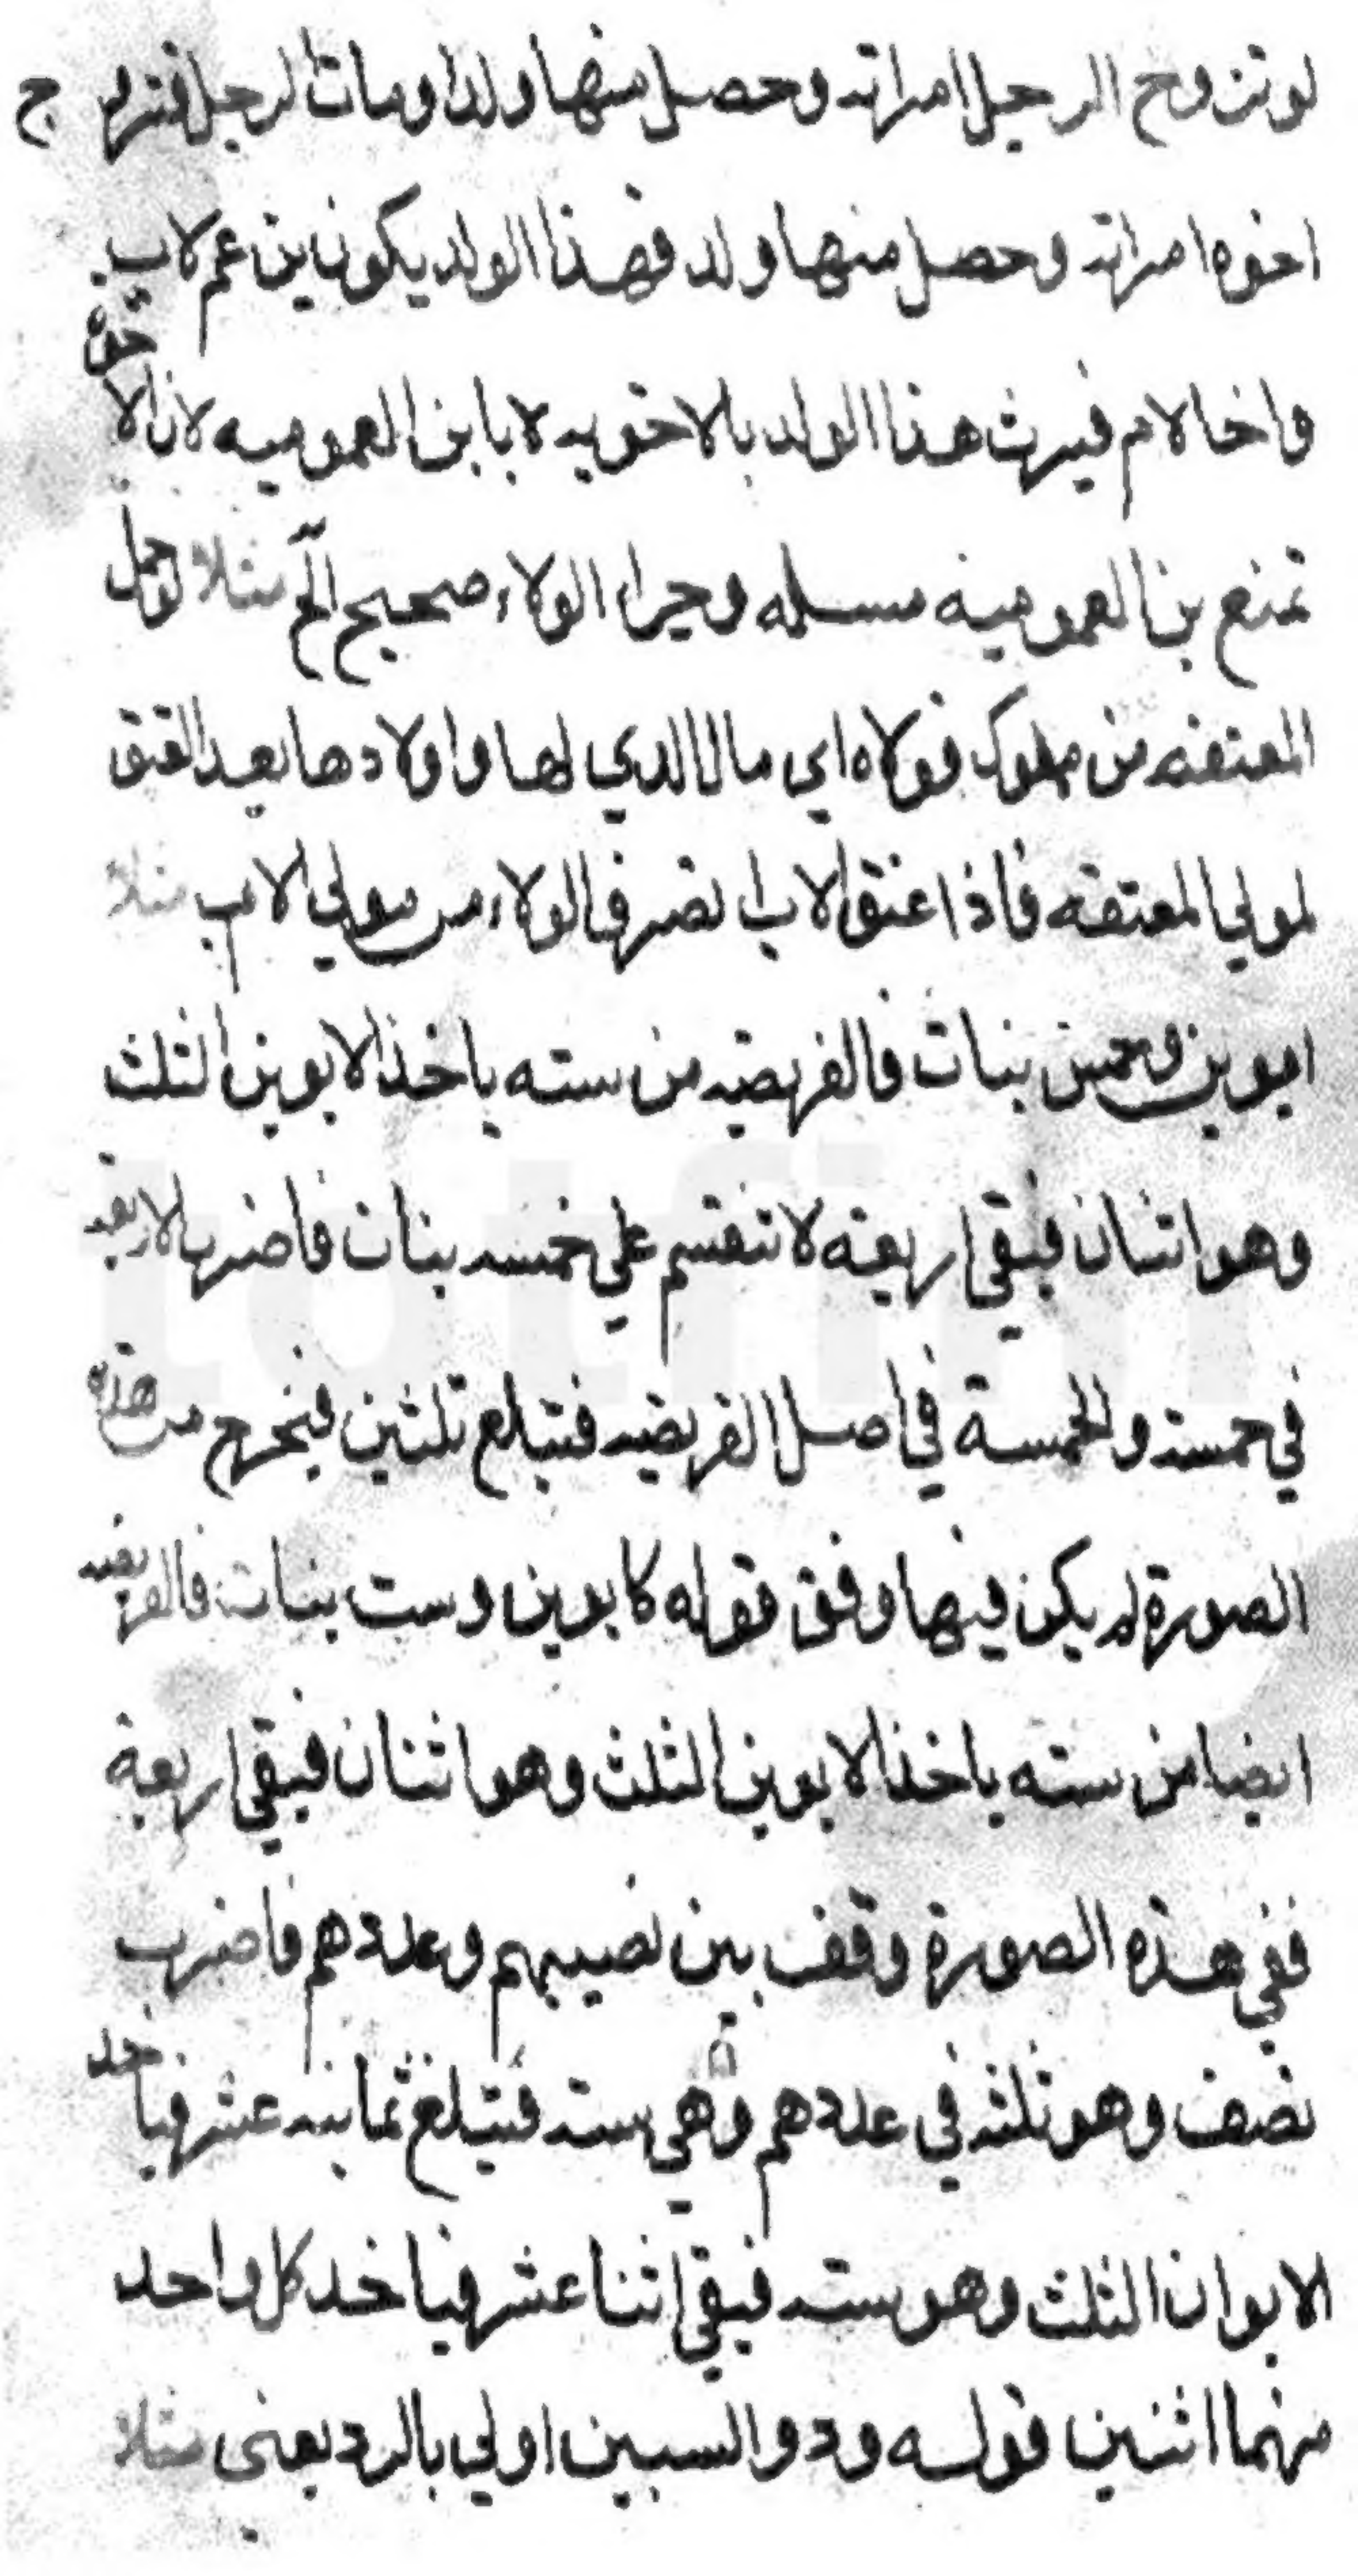 لو تزوج الرجل امراته وحصل منها ولدا ومات الرجل فتزوج
اخوه امراته وحصل منها ولد فهذا الولد يكون ابن عم لاب
واخا لام فيرث هذا الولد بالاخويه لا بابن العموميه لان الاخوة
تمنع بن العموميه مسله وجر الولاء صحيح الخ مثلا لو حمل
المعتقه من مملوك فولاه اي مال الدي لها واولادها بعد العتق
لمولي المعتقه فاذا اعتق الاب انصرف الولاء من مولي الام مثلا
ابوين وخمس بنات فالفريضه من سته ياخذ الابوين الثلث
وهو اثنان فيبقي اربعة لا تنقسم علي خمسه بنات فاضرب الاربعه
في خمسه والخمسة في اصل الفريضه فتبلغ ثلثين فيخرج من هذه
الصورة لم يكن فيها وفق قوله كابوين وست بنات فالفريضه
ايضا من سته ياخذ الابوين الثلث وهو اثنان فيبقي اربعة
ففي هذه الصورة وقف بين نصيبهم وعددهم فاضرب
نصف وهو ثلثه في عددهم وهي سته فتبلغ ثمانيه عشر فياخد
الابوان الثلث وهو سته فيبقي اثنا عشر فياخد كل واحد
منهما اثنين قوله ودو السببين اولي بالرد يعني مثلا